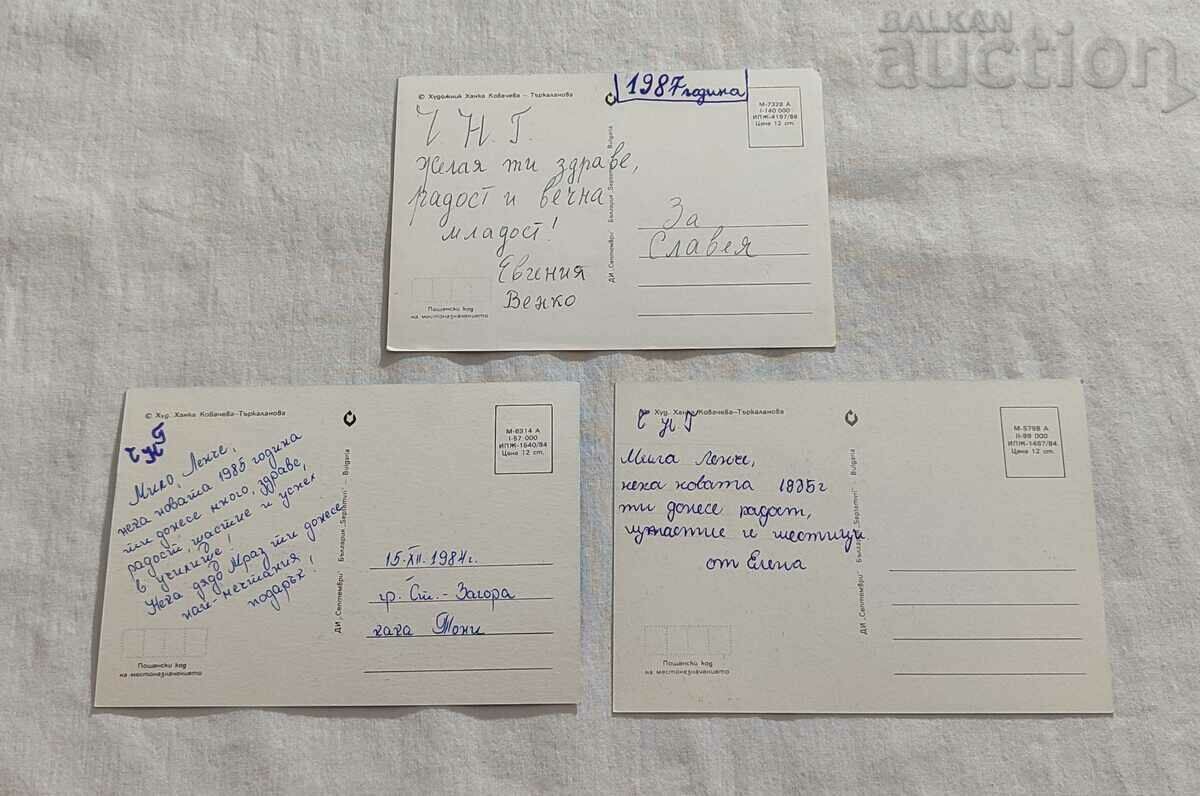 BALKAN
auction
© Художник Ханка Ковачева – Търкаланова
1987 година
М-7328 А
I-140 000
ИПЖ-4197/86
Цена 12 ст.
Ч Н. Г.
Желая ти здраве,
радост и вечна
младост!
Евгения
Венко
За
Славея
ДИ „Септември" България „Septemvri" Bulgaria
Пощенски код
на местоназначението
© Худ. Ханка Ковачева–Търкаланова
ЧНГ
Мило, Ленче,
нека новата 1985 година
ти донесе много, здраве,
радост, щастие и успех
в училище!
Нека дядо Мраз ти донесе
най-мечтания
подарък!
М-6314 А
I-57 000
ИПЖ-1540/84
Цена 12 ст.
15.XII.1984г.
гр. Ст.-Загора
кака Тони
ДИ „Септември" България „Septemvri" – Bulgaria
Пощенски код
на местоназначението
Худ. Ханка Ковачева–Търкаланова
Ч Н Г
Мила Ленче,
нека новата 1985г
ти донесе радост,
щастие и шестици
от Елена
М-5798 А
II-99 000
ИПЖ-1467/84
Цена 12 ст.
ДИ „Септември" България „Septemvri" – Bulgaria
Пощенски код
на местоназначението